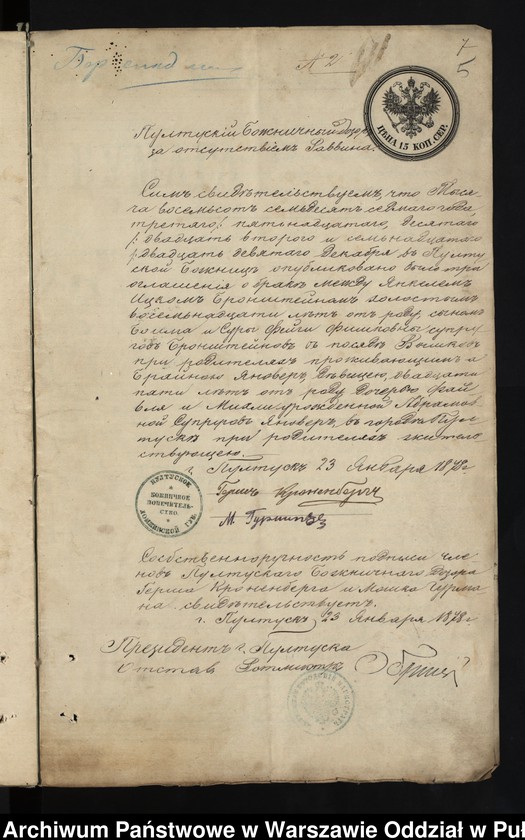 № 2
7
5
ЦѢНА 15 КОП. СЕР.
Пултускій Божничный Дозоръ
за отсутствіемъ Раввина.
Симъ свидѣтельствуемъ, что Тыся-
ча восемьсотъ семьдесятъ седьмаго года
третяго/: пятьнадцатаго, десятаго
/: двадцать втораго и семьнадцатаго
/: двадцать девятаго Декабря въ Пулту
ской Божницѣ опубликовано было три
оглашенія о бракѣ между Янкелемъ
Ицкомъ Бронштейномъ холостымъ
восемьнадцати лѣтъ отъ роду сыномъ
и Суры Фейги супру
говъ Бронштейновъ въ посадѣ
при родителяхъ проживающимъ и
Яноверъ, Дѣвицею, двадцати
пяти лѣтъ отъ роду дочерью Фай
рожденной Абрамов
ной Супруговъ Яноверъ, въ городѣ Пул
тускѣ при родителяхъ жител
ствующею.
г. Пултускъ 23 Января 1878 г
Гершъ Кроненбергъ
М.
ПУЛТУСКОЕ
БОЖНИЧНОЕ
ПОПЕЧИТЕЛЬ-
СТВО
ЛОМЖИНСКОЙ ГУБ.
Собственноручность подписи Чле
новъ Пултускаго Божничнаго Дозора
Герша Кроненберга и Мошка Гурма
на свидѣтельствуетъ.
г. Пултускъ 23 Января 1878 г
Президентъ г. Пултуска
Отстав Ротмистръ
Archiwum Państwowe w Warszawie Oddział w Puł